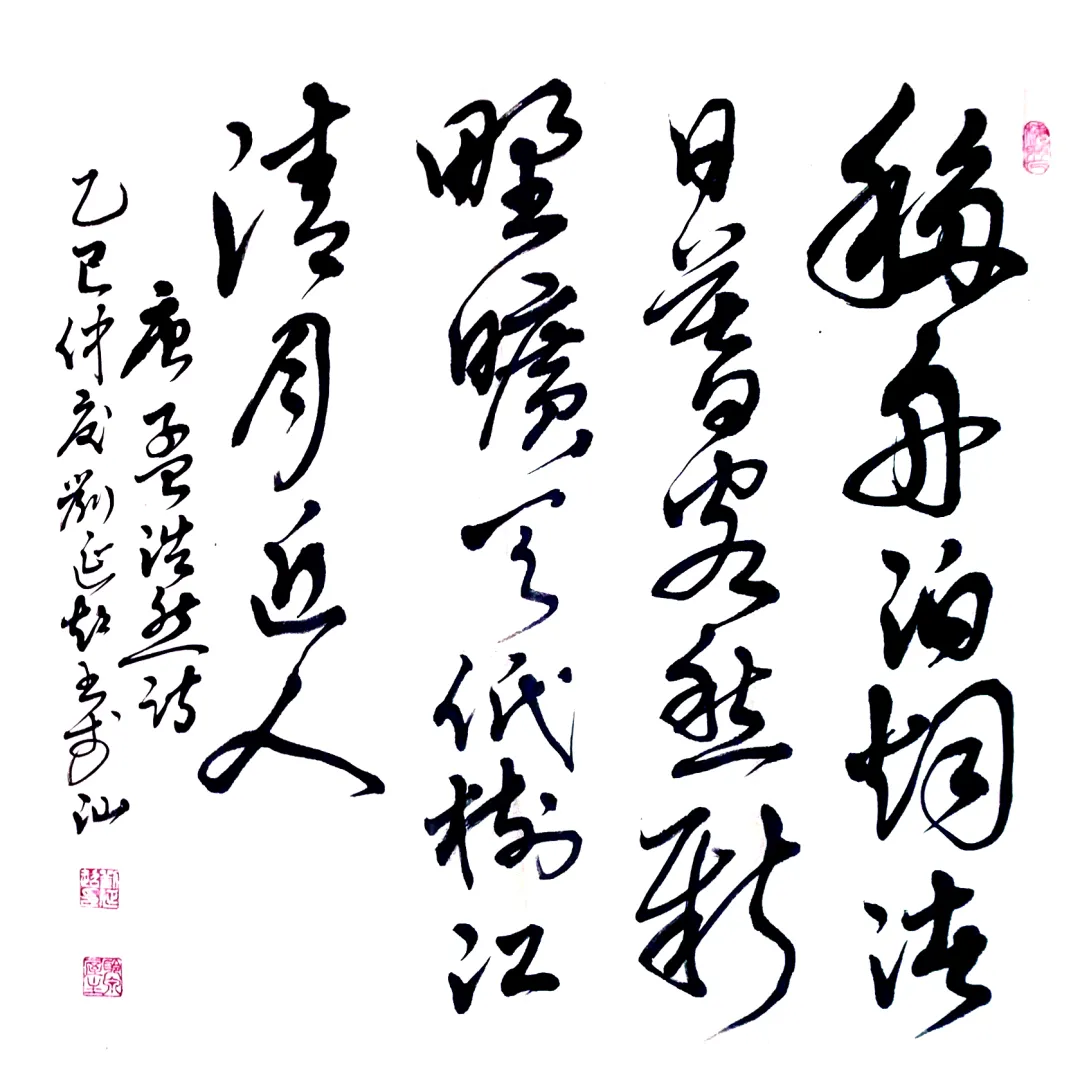 移舟泊烟渚
日暮客愁新
野曠天低樹江
清月近人
唐孟浩然诗
乙巳仲夏劉延超书於汕